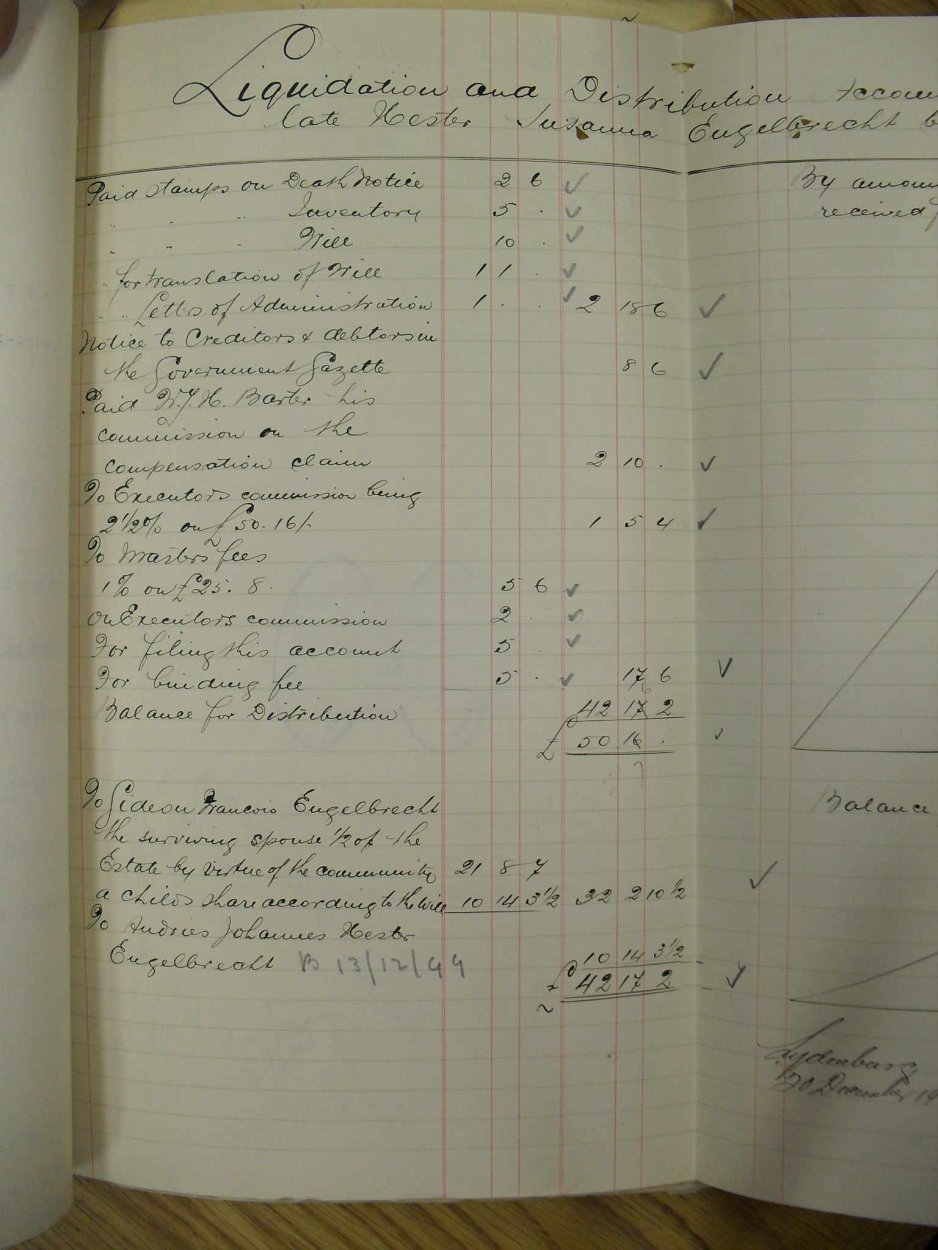 Liquidation and Distribution Accoun
late Hester Susanna Engelbrecht b
Paid stamps on Death Notice 2 6
" " " Inventory 5 .
" " " Will 10 .
" for translation of Will 1 1 .
" " Letters of Administration 1 . . 2 18 6
Notice to Creditors & debtors in
the Government Gazette 8 6
Paid W.J.H. Barter his
commission on the
compensation claim 2 10 .
To Executors commission being
2 1/2% on £50. 16/- 1 5 4
To Masters fees
1% on £25. 8. 5 6
on Executors commission 2 .
For filing this account 5 .
For binding fee 5 . 17 6
Balance for Distribution 42 17 2
£ 50 16 .
To Gideon Francois Engelbrecht
the surviving spouse 1/2 of the
Estate by virtue of the community 21 8 7
a childs share according to the Will 10 14 3 1/2 32 2 10 1/2
To Andries Johannes Hester
Engelbrecht B 13/12/99 10 14 3 1/2
£ 42 17 2
By amoun
received
Balance
Lydenburg
20 December 19